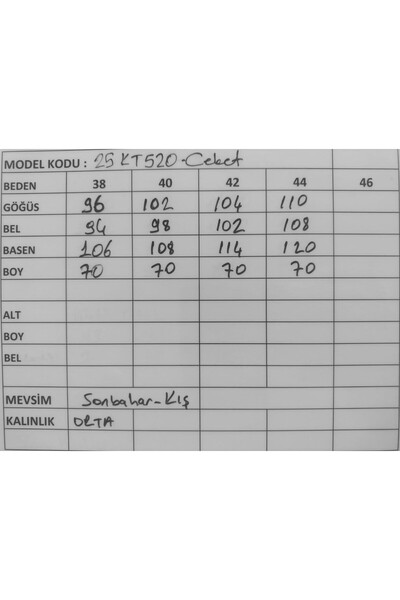 MODEL KODU : 25 KT520-Ceket
BEDEN 38 40 42 44 46
GÖĞÜS 96 102 104 110
BEL 94 98 102 108
BASEN 106 108 114 120
BOY 70 70 70 70
ALT
BOY
BEL
MEVSİM Sonbahar-Kış
KALINLIK ORTA